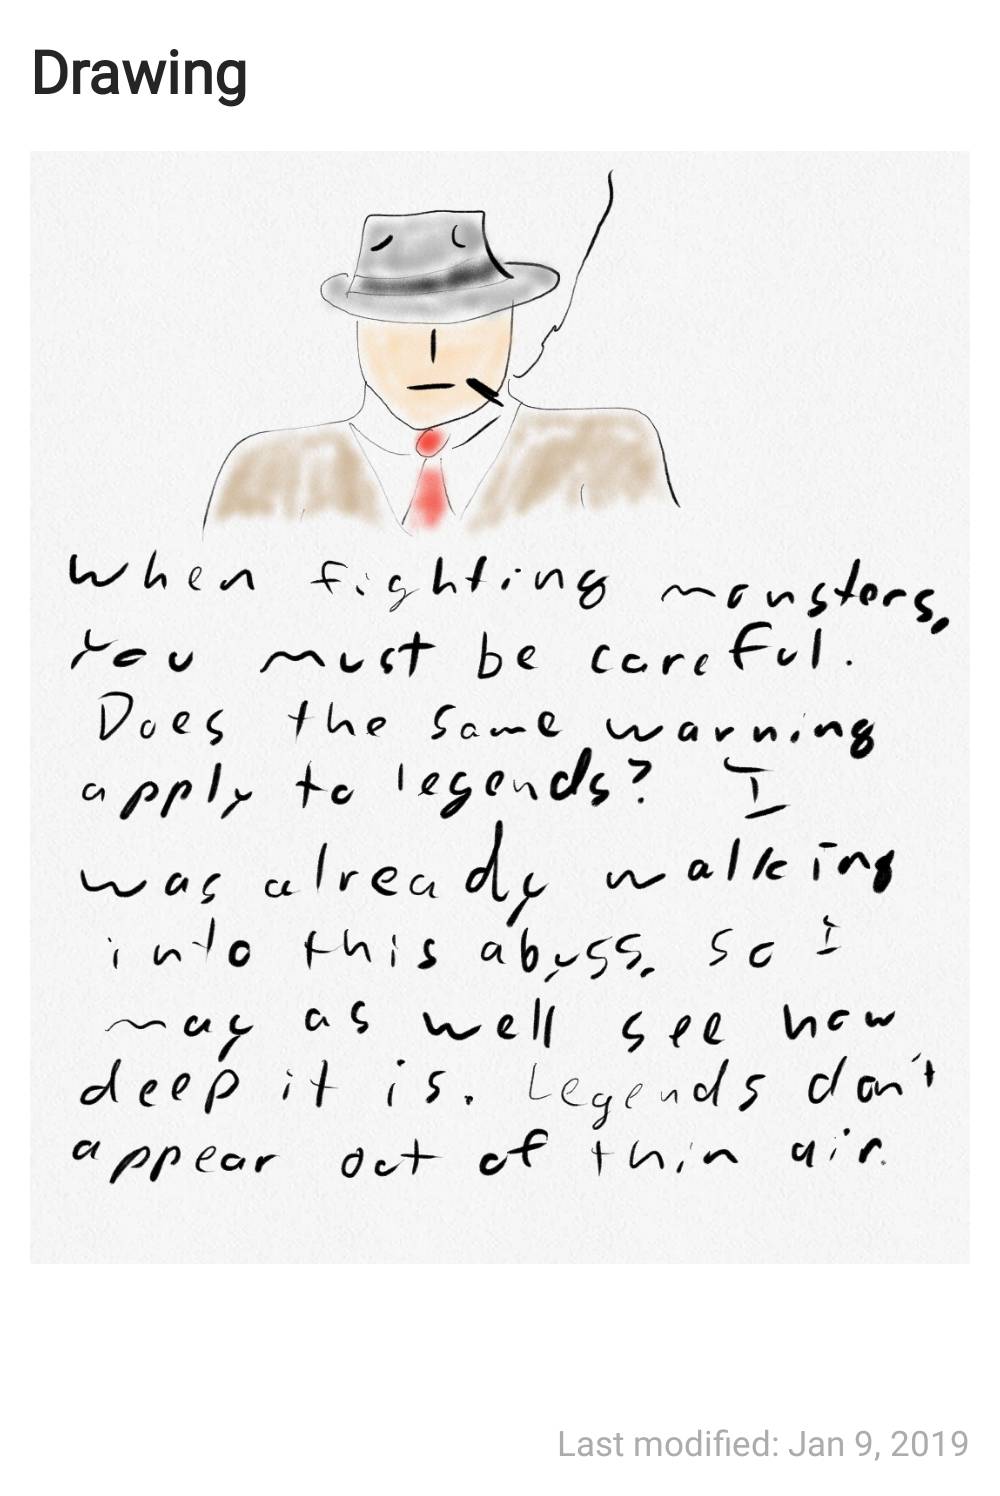 Drawing
When fighting monsters,
You must be careful.
Does the same warning
apply to legends? I
was already walking
into this abyss, so I
may as well see how
deep it is. Legends don't
appear out of thin air.
Last modified: Jan 9, 2019